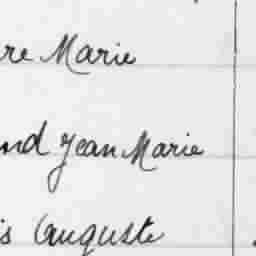 re Marie
nd Jean Marie
is Auguste